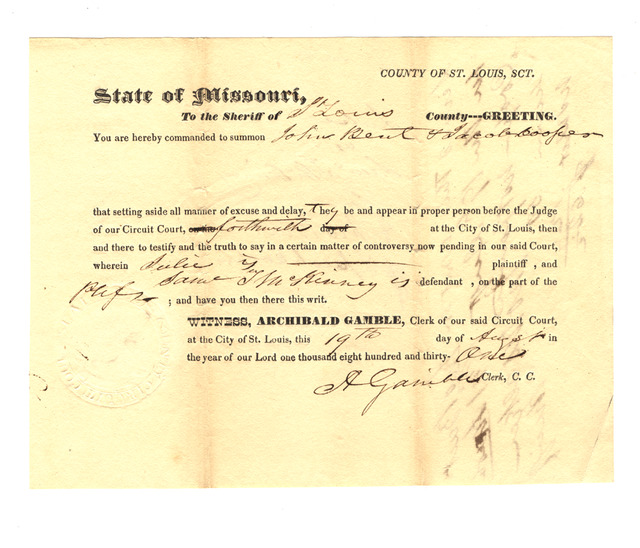 COUNTY OF ST. LOUIS, SCT.
State of Missouri,
To the Sheriff of St Louis County---GREETING.
You are hereby commanded to summon John Bent & Jacob Cooper
that setting aside all manner of excuse and delay, They be and appear in proper person before the Judge
of our Circuit Court, on the forthwith day of at the City of St. Louis, then
and there to testify and the truth to say in a certain matter of controversy now pending in our said Court,
wherein Julie plaintiff , and
Saml T McKinney is defendant , on the part of the
Plffs ; and have you then there this writ.
WITNESS, ARCHIBALD GAMBLE, Clerk of our said Circuit Court,
at the City of St. Louis, this 19th day of Augst in
the year of our Lord one thousand eight hundred and thirty- One
A Gamble Clerk, C. C.